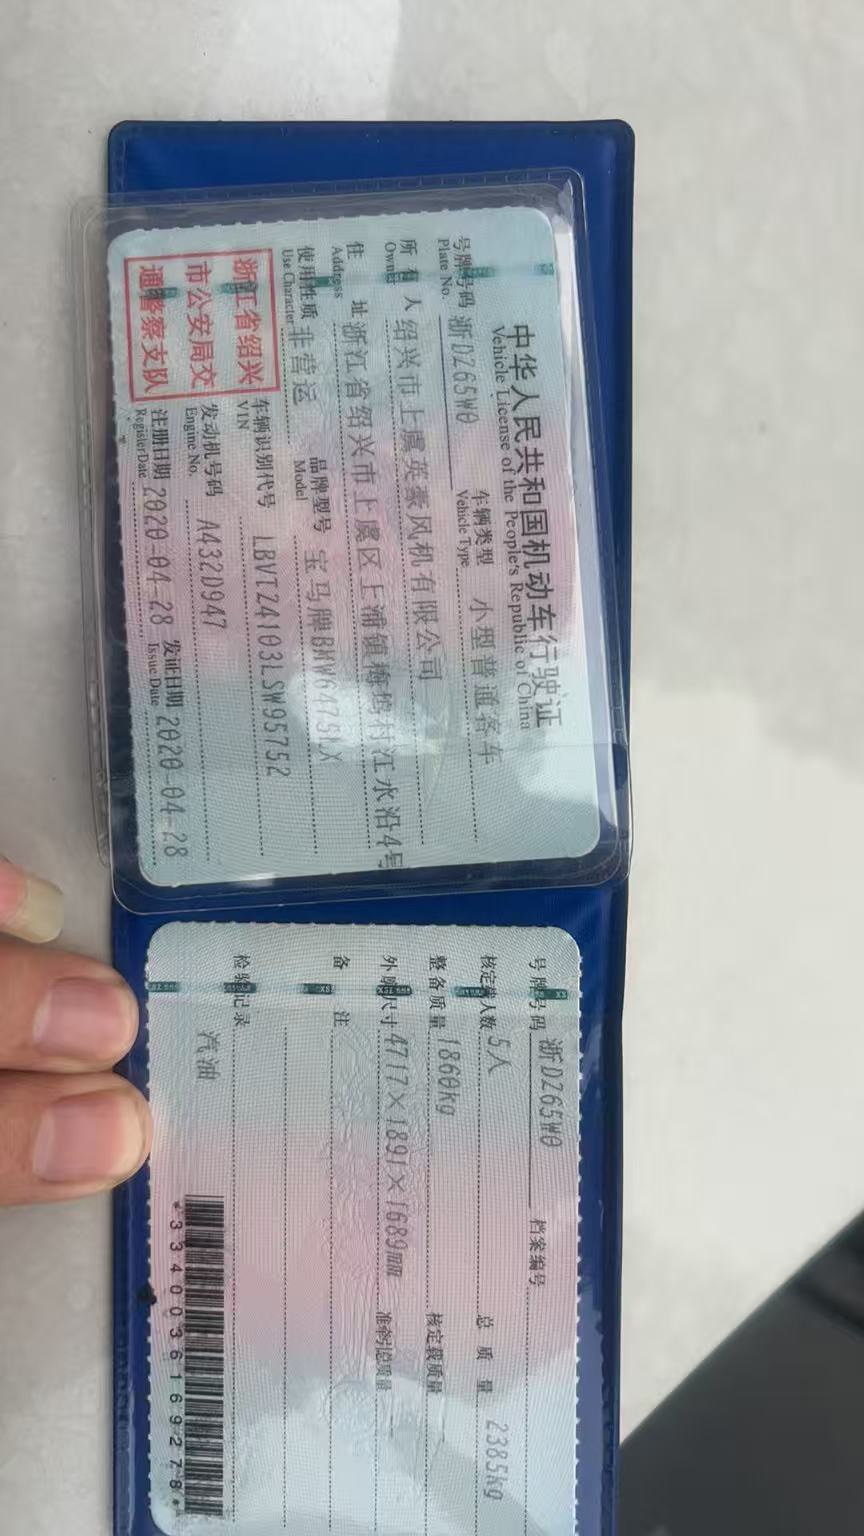 中华人民共和国机动车行驶证
Vehicle License of the People's Republic of China
号牌号码 浙DZ65W0 车辆类型 小型普通客车
Plate No. Vehicle Type
所有人 绍兴市上虞英豪风机有限公司
Owner
住址 浙江省绍兴市上虞区上浦镇梅坞村江水沿4号
Address
使用性质 非营运 品牌型号 宝马牌BMW6475LX
Use Character Model
浙江省绍兴
市公安局交
通警察支队
车辆识别代号 LBVTZ4103LSW95752
VIN
发动机号码 A432D947
Engine No.
注册日期 2020-04-28 发证日期 2020-04-28
Register Date Issue Date
号牌号码 浙DZ65W0 档案编号
核定载人数 5人 总质量 2385kg
整备质量 1860kg 核定载质量
外廓尺寸 4717×1891×1689mm 准牵引总质量
备注
检验记录
汽油
*3340036169278*